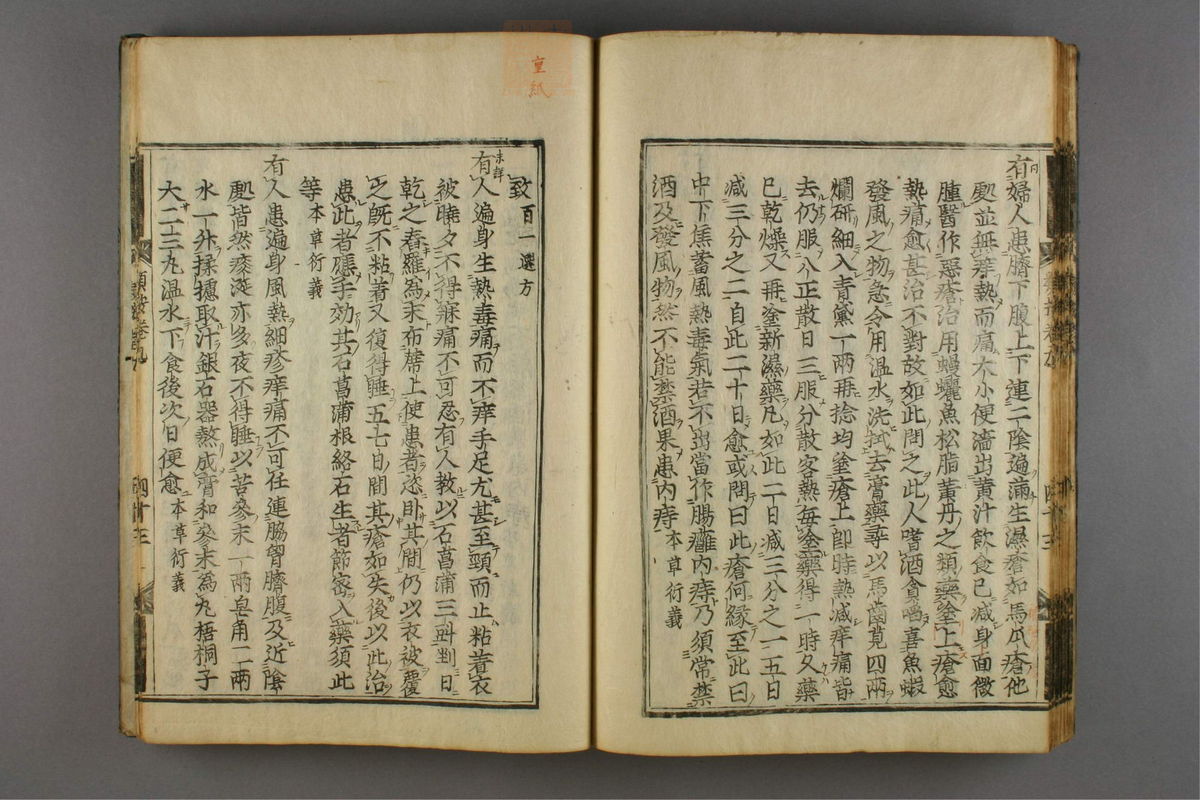 有婦人患臍下腹上下連二陰遍滿生濕瘡如馬瓜瘡他
處並無痒熱而痛大小便濇出黃汁飲食已减身面微
腫醫作惡瘡治用鰻鱺魚松脂黃丹之類藥塗上瘡愈
熱痛愈甚治不對故如此問之此人嗜酒貪啗喜魚蝦
發風之物急令用溫水洗拭去膏藥尋以馬齒莧四兩
爛研細入青黛一兩再捻均塗瘡上即時熱减痒痛皆
去仍服八正散日三服分散客熱每塗藥得一時久藥
已乾燥又再塗新濕藥凡如此二日减三分之一五日
减三分之二自此二十日愈或問曰此瘡何緣至此曰
中下焦蓄風熱毒氣若不出當作腸癰内痔乃須常禁
酒及發風物然不能禁酒果患内痔 本草衍義
致 百一選方
未詳
有人遍身生熱毒痛而不痒手足尤甚至頸而止粘着衣
被曉夕不得寐痛不可忍有人教以石菖蒲三㪷剉日
乾之舂羅為末布蓆上使患者恣卧其間仍以衣被覆
之旣不粘着又復得睡五七日間其瘡如失後以此治
患此者應手効其石菖蒲根絡石生者節密入藥須此
等 本草衍義
有人患遍身風熱細疹痒痛不可任連脇胷臍腹及近隂
處皆然痰涎亦多夜不得睡以苦參末一兩皂角二兩
水一升揉㨨取汁銀石器熬成膏和參末為丸梧桐子
大二三十丸溫水下食後次日便愈 本草衍義
類說卷九
四十三
重紙